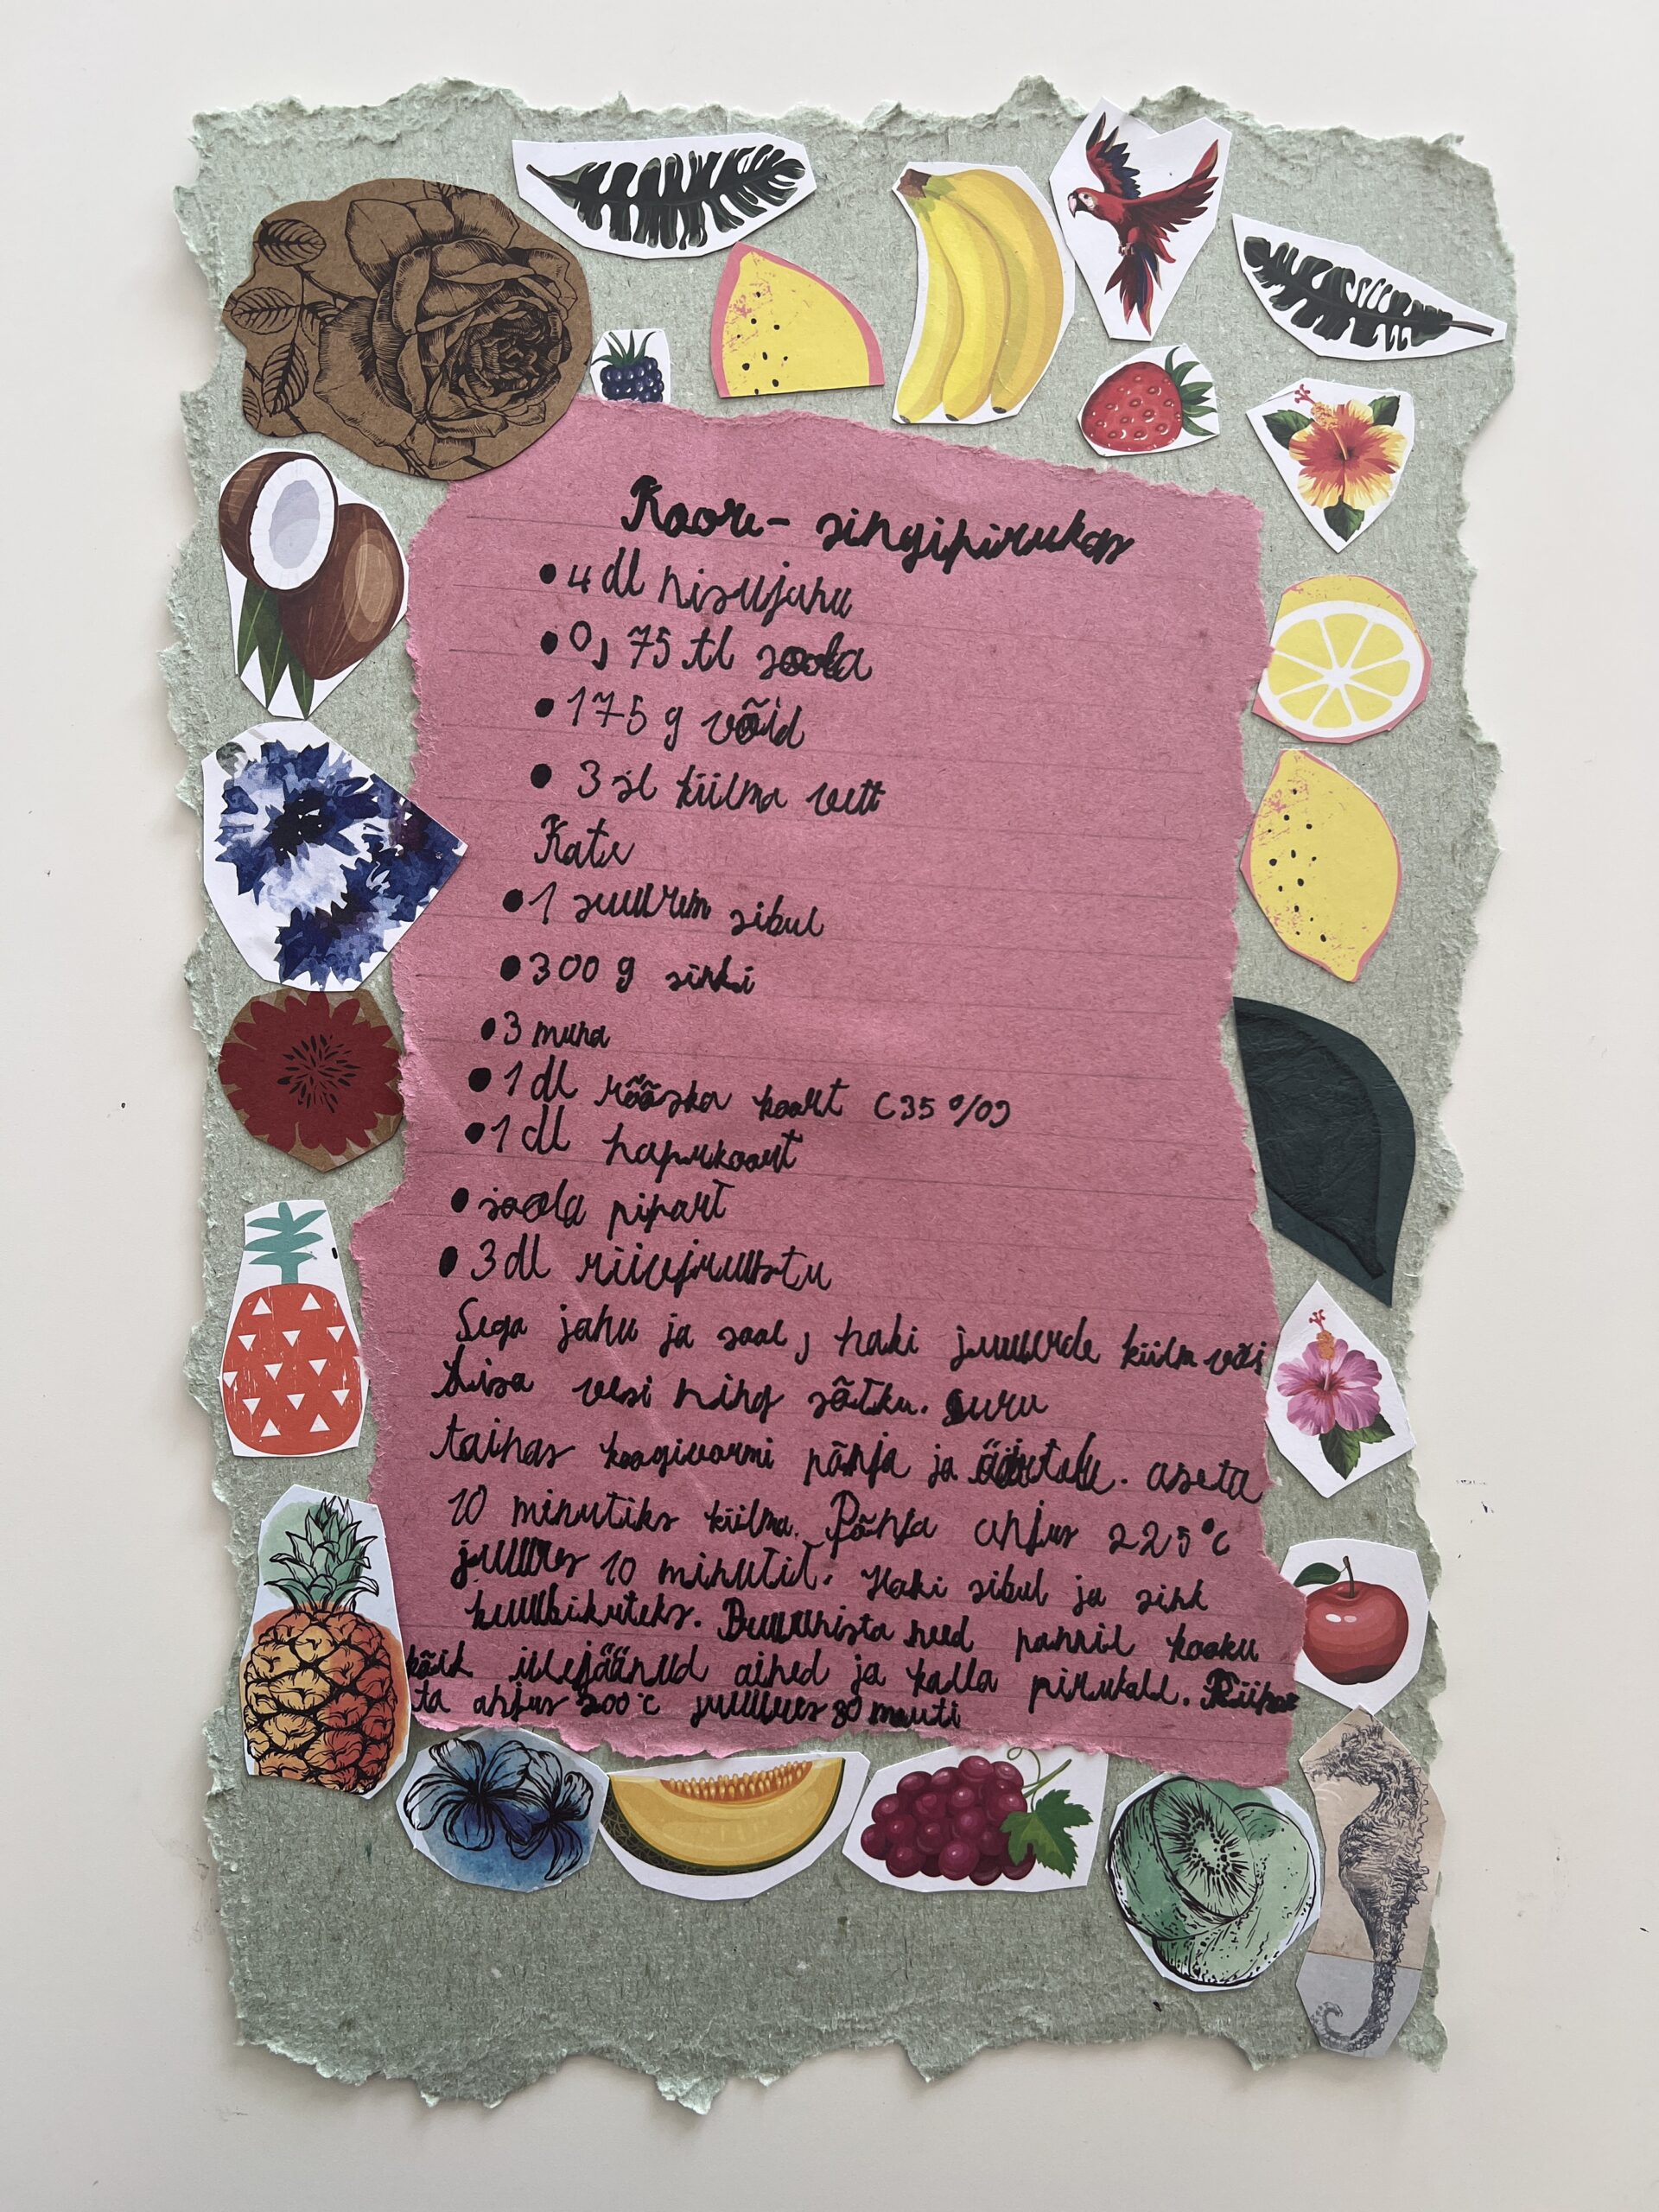 Koore- singipirukas
• 4 dl nisujahu
• 0,75 tl soola
• 175 g võid
• 3 sl külma vett
Kate
• 1 suurem sibul
• 300 g sinki
• 3 muna
• 1 dl rõõska koort (35%)
• 1 dl hapukoort
• soola pipart
• 3 dl riivejuustu
Sega jahu ja sool, haki juurde külm või
Lisa vesi ning sõtku. Suru
tainas koogivormi põhja ja äärtele. aseta
10 minutiks külma. Põhja ahjus 225°C
juures 10 minutit. Haki sibul ja sink
kuubikuteks. Pruunista need pannil kooku
kõik ülejäänud ained ja kalla pirukale. Küpse
ta ahjus 200°C juures 30 minuti